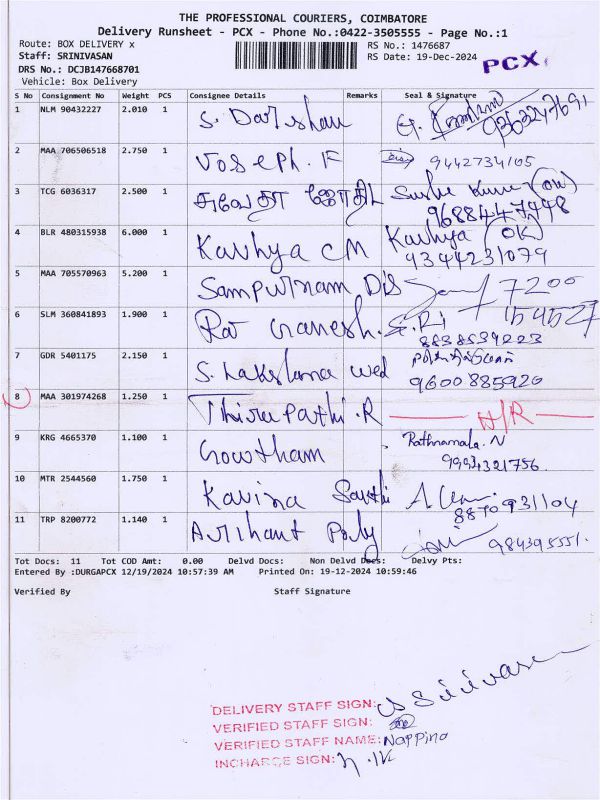 THE PROFESSIONAL COURIERS, COIMBATORE
Delivery Runsheet - PCX - Phone No.:0422-3505555 - Page No.:1
Route: BOX DELIVERY x
Staff: SRINIVASAN
DRS No.: DCJB147668701
Vehicle: Box Delivery
RS No.: 1476687
RS Date: 19-Dec-2024
PCX
S No Consignment No Weight PCS Consignee Details Remarks Seal & Signature
1 NLM 90432227 2.010 1 S. Darshan 9363247691
2 MAA 706506518 2.750 1 Joseph. F 9442734105
3 TCG 6036317 2.500 1 சுவேதா ஜோதி
9688447448
4 BLR 480315938 6.000 1 Kavhya CM Kavhya (OK)
9344231079
5 MAA 705570963 5.200 1 Sampurnam Dis 7200
6 SLM 360841893 1.900 1 Raj Ganesh. 154527
8838539223
7 GDR 5401175 2.150 1 S. Lakshma Wed
9600885920
8 MAA 301974268 1.250 1 Thirupathi.R N/R
9 KRG 4665370 1.100 1 Gowtham Rathnamala.N
9994321756.
10 MTR 2544560 1.750 1 Kavina Sakthi
8870931104
11 TRP 8200772 1.140 1 Arihant Poly 984395551.
Tot Docs: 11 Tot COD Amt: 0.00 Delvd Docs: Non Delvd Docs: Delvy Pts:
Entered By :DURGAPCX 12/19/2024 10:57:39 AM Printed On: 19-12-2024 10:59:46
Verified By Staff Signature
DELIVERY STAFF SIGN: Srinivasan
VERIFIED STAFF SIGN:
VERIFIED STAFF NAME: Nappina
INCHARGE SIGN: